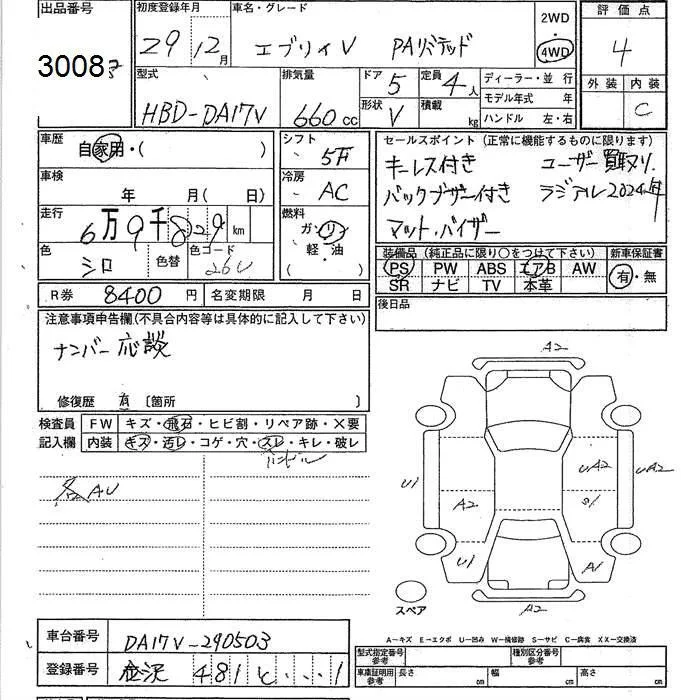 出品番号
3008
初度登録年月 29年12月
車名・グレード エブリィV PAリミテッド
2WD
4WD
評価点 4
外装 内装 C
型式 HBD-DA17V
排気量 660cc
ドア 5
形状 V
定員 4人
積載 kg
ディーラー・並行
モデル年式 年
ハンドル 左・右
車歴 自家用・( )
シフト 5F
セールスポイント(正常に機能するものに限ります)
キーレス付き ユーザー買取り.
バックブザー付き ラジアル2024年
マット・バイザー
車検 年 月( 日)
冷房 AC
走行 6万9千829km
燃料 ガソリン
軽・油
( )
色 シロ 色替 色コード 26U
装備品(純正品に限り○をつけて下さい) 新車保証書
PS PW ABS エアB AW 有・無
SR ナビ TV 本革
R券 8400円 名変期限 月 日
後日品
注意事項申告欄(不具合内容等は具体的に記入して下さい)
ナンバー応談
修復歴 有 〔箇所 〕
検査員
記入欄
FW キズ・飛石・ヒビ割・リペア跡・X要
内装 キズ・汚レ・コゲ・穴・スレ・キレ・破レ
ハンドル
各AU
A2
U1 A2 UA2 UA2
S1
U1 A1
A2
スペア
A-キズ E-エクボ U-凹み W-補修跡 S-サビ C-腐食 XX-交換済
車台番号 DA17V-290503
型式指定番号 参考
種別区分番号 参考
登録番号 金沢 481 と ・・・1
車庫証明用 参考 長さ cm 幅 cm 高さ cm